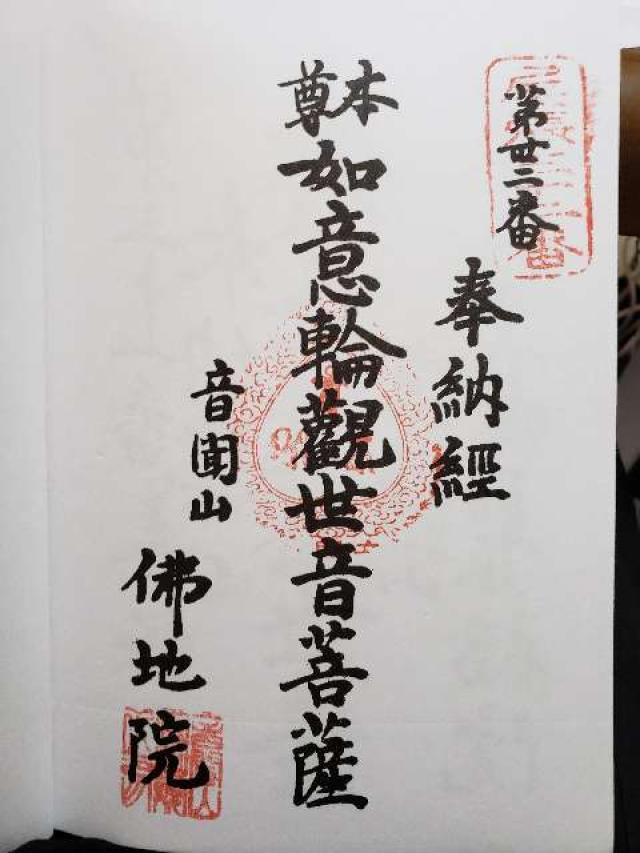 第卅二番
奉納經
本尊如意輪觀世音菩薩
音聞山
佛地院